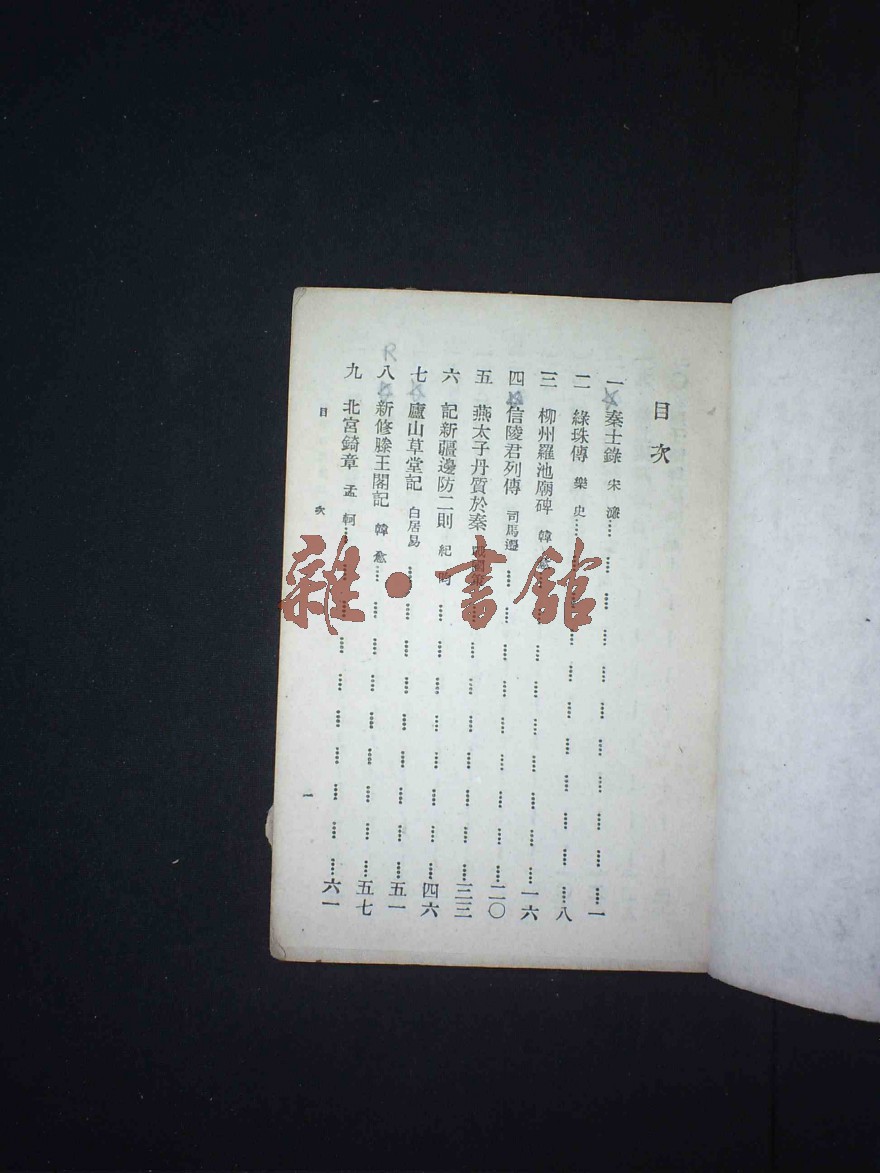 目次
一 秦士錄 宋濂 一
二 綠珠傳 樂史 八
三 柳州羅池廟碑 韓愈 一六
四 信陵君列傳 司馬遷 二〇
五 燕太子丹質於秦 三三
六 記新疆邊防二則 紀 四六
七 廬山草堂記 白居易 五一
八 新修滕王閣記 韓愈 五七
九 北宮錡章 孟軻 六一
目次 一
R
雜·書館